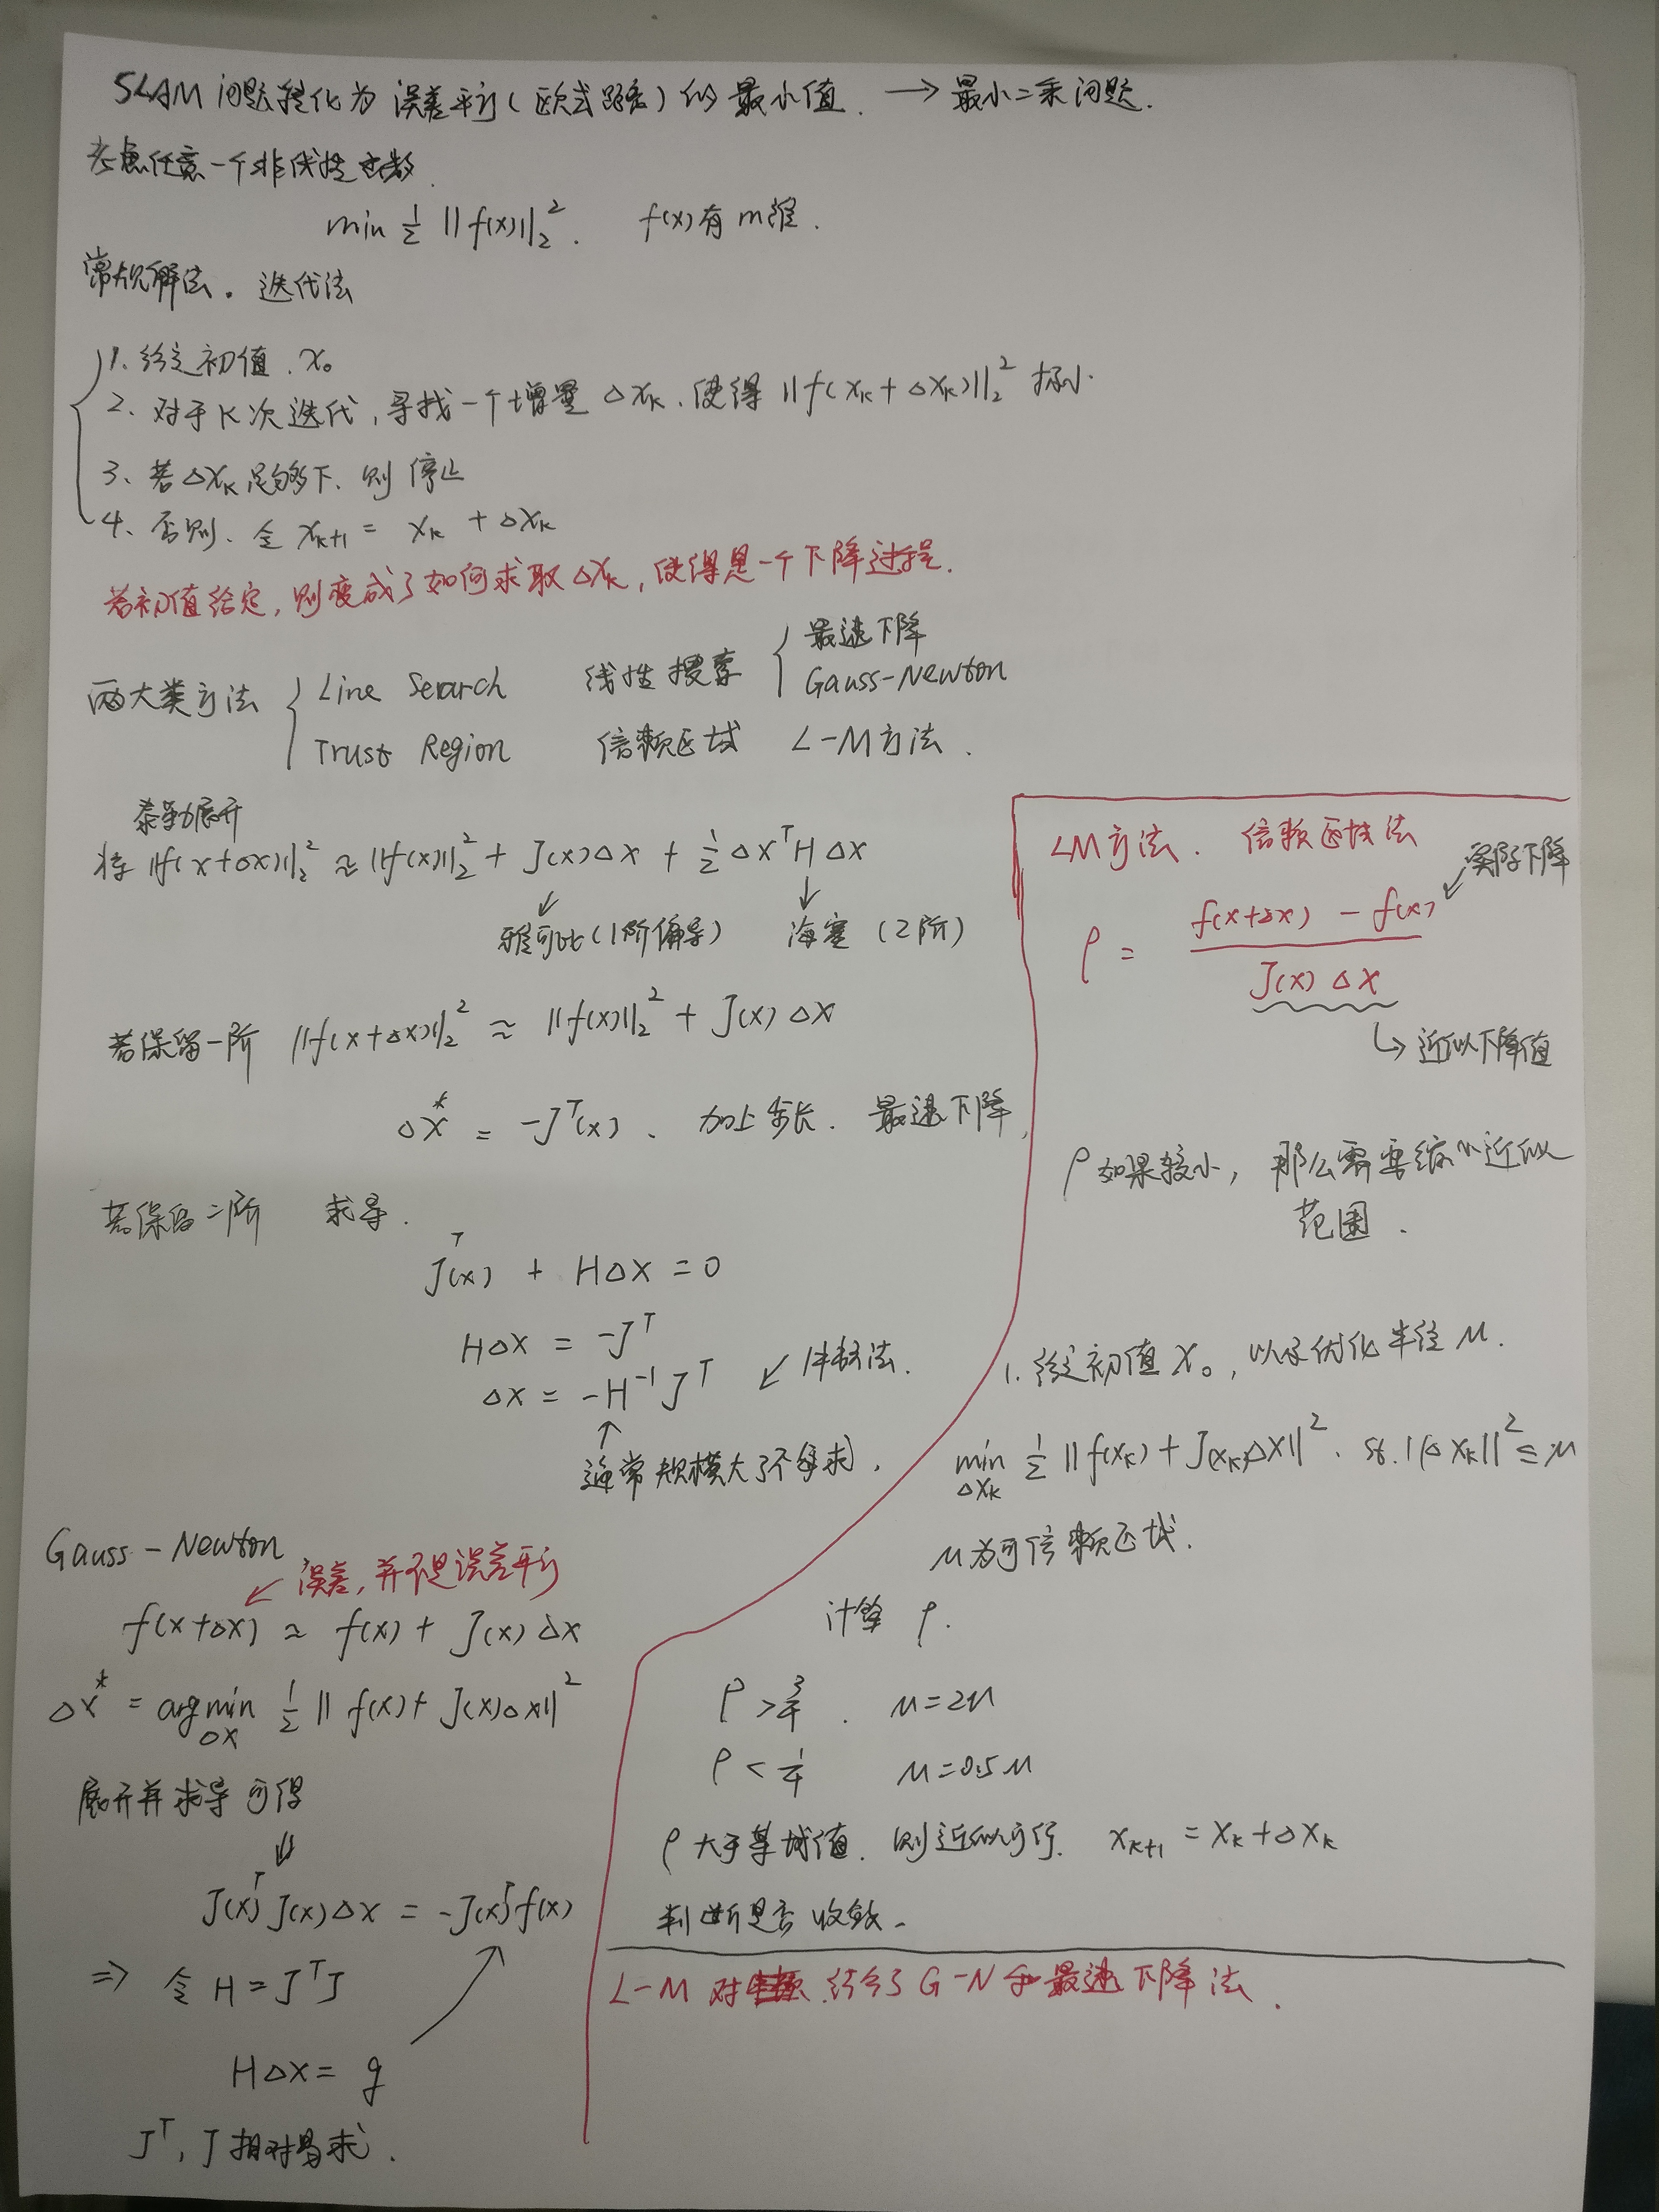 SLAM 问题转化为 误差平方(欧式距离)的 最小值. → 最小二乘问题.
考虑任意一个非线性函数.
min ½ ||f(x)||₂². f(x)有 m维.
常规解法. 迭代法
1、给定初值. x₀
2、对于K次迭代, 寻找一个增量 Δxₖ. 使得 ||f(xₖ+Δxₖ)||₂² 极小.
3、若 Δxₖ 足够下. 则 停止
4、否则、令 xₖ₊₁ = xₖ + Δxₖ
若初值给定, 则变成了如何求取Δxₖ, 使得是一个下降过程.
两大类方法 { Line Search 线性搜索 { 最速下降
Gauss-Newton
Trust Region 信赖区域 L-M方法.
泰勒展开
将 ||f(x+Δx)||₂² ≈ ||f(x)||₂² + J(x)Δx + ½ Δxᵀ H Δx
雅可比(1阶偏导) 海塞(2阶)
若保留一阶 ||f(x+Δx)||₂² ≈ ||f(x)||₂² + J(x) Δx
Δx* = -Jᵀ(x). 加上步长. 最速下降,
若保留二阶 求导.
J(x)ᵀ + HΔx = 0
HΔx = -Jᵀ
Δx = -H⁻¹Jᵀ ↙ 牛顿法.
↑
通常规模大了不好求.
Gauss-Newton
↙ 误差, 并不是误差平方
f(x+Δx) ≈ f(x) + J(x) Δx
Δx* = argmin ½ || f(x) + J(x)Δx||²
Δx
展开并求导 可得
⇓
J(x)ᵀ J(x) Δx = -J(x)ᵀ f(x)
⇒ 令 H = JᵀJ
HΔx = g
Jᵀ, J 相对易求.
LM方法. 信赖区域法
↙ 实际下降
ρ = (f(x+Δx) - f(x)) / (J(x) Δx)
↳ 近似下降值
ρ 如果较小, 那么需要缩小近似
范围.
1. 给定初值 x₀, 以及优化半径 μ.
min ½ || f(xₖ) + J(xₖ)Δx||². st. ||Δxₖ||² ≤ μ
Δxₖ
μ为可信赖区域.
计算 ρ.
ρ > ¾. μ = 2μ
ρ < ¼ μ = 0.5μ
ρ 大于某域值. 则近似可行. xₖ₊₁ = xₖ + Δxₖ
判断是否收敛.
L-M 对 结合了 G-N 和 最速下降法.